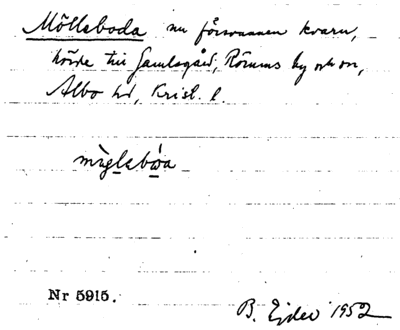 Mölleboda nu försvunnen kvarn,
hörde till Gamlegård, Rörums by och sn,
Albo hd, Krist. l.
Nr 5915.
B. Ejder 1952